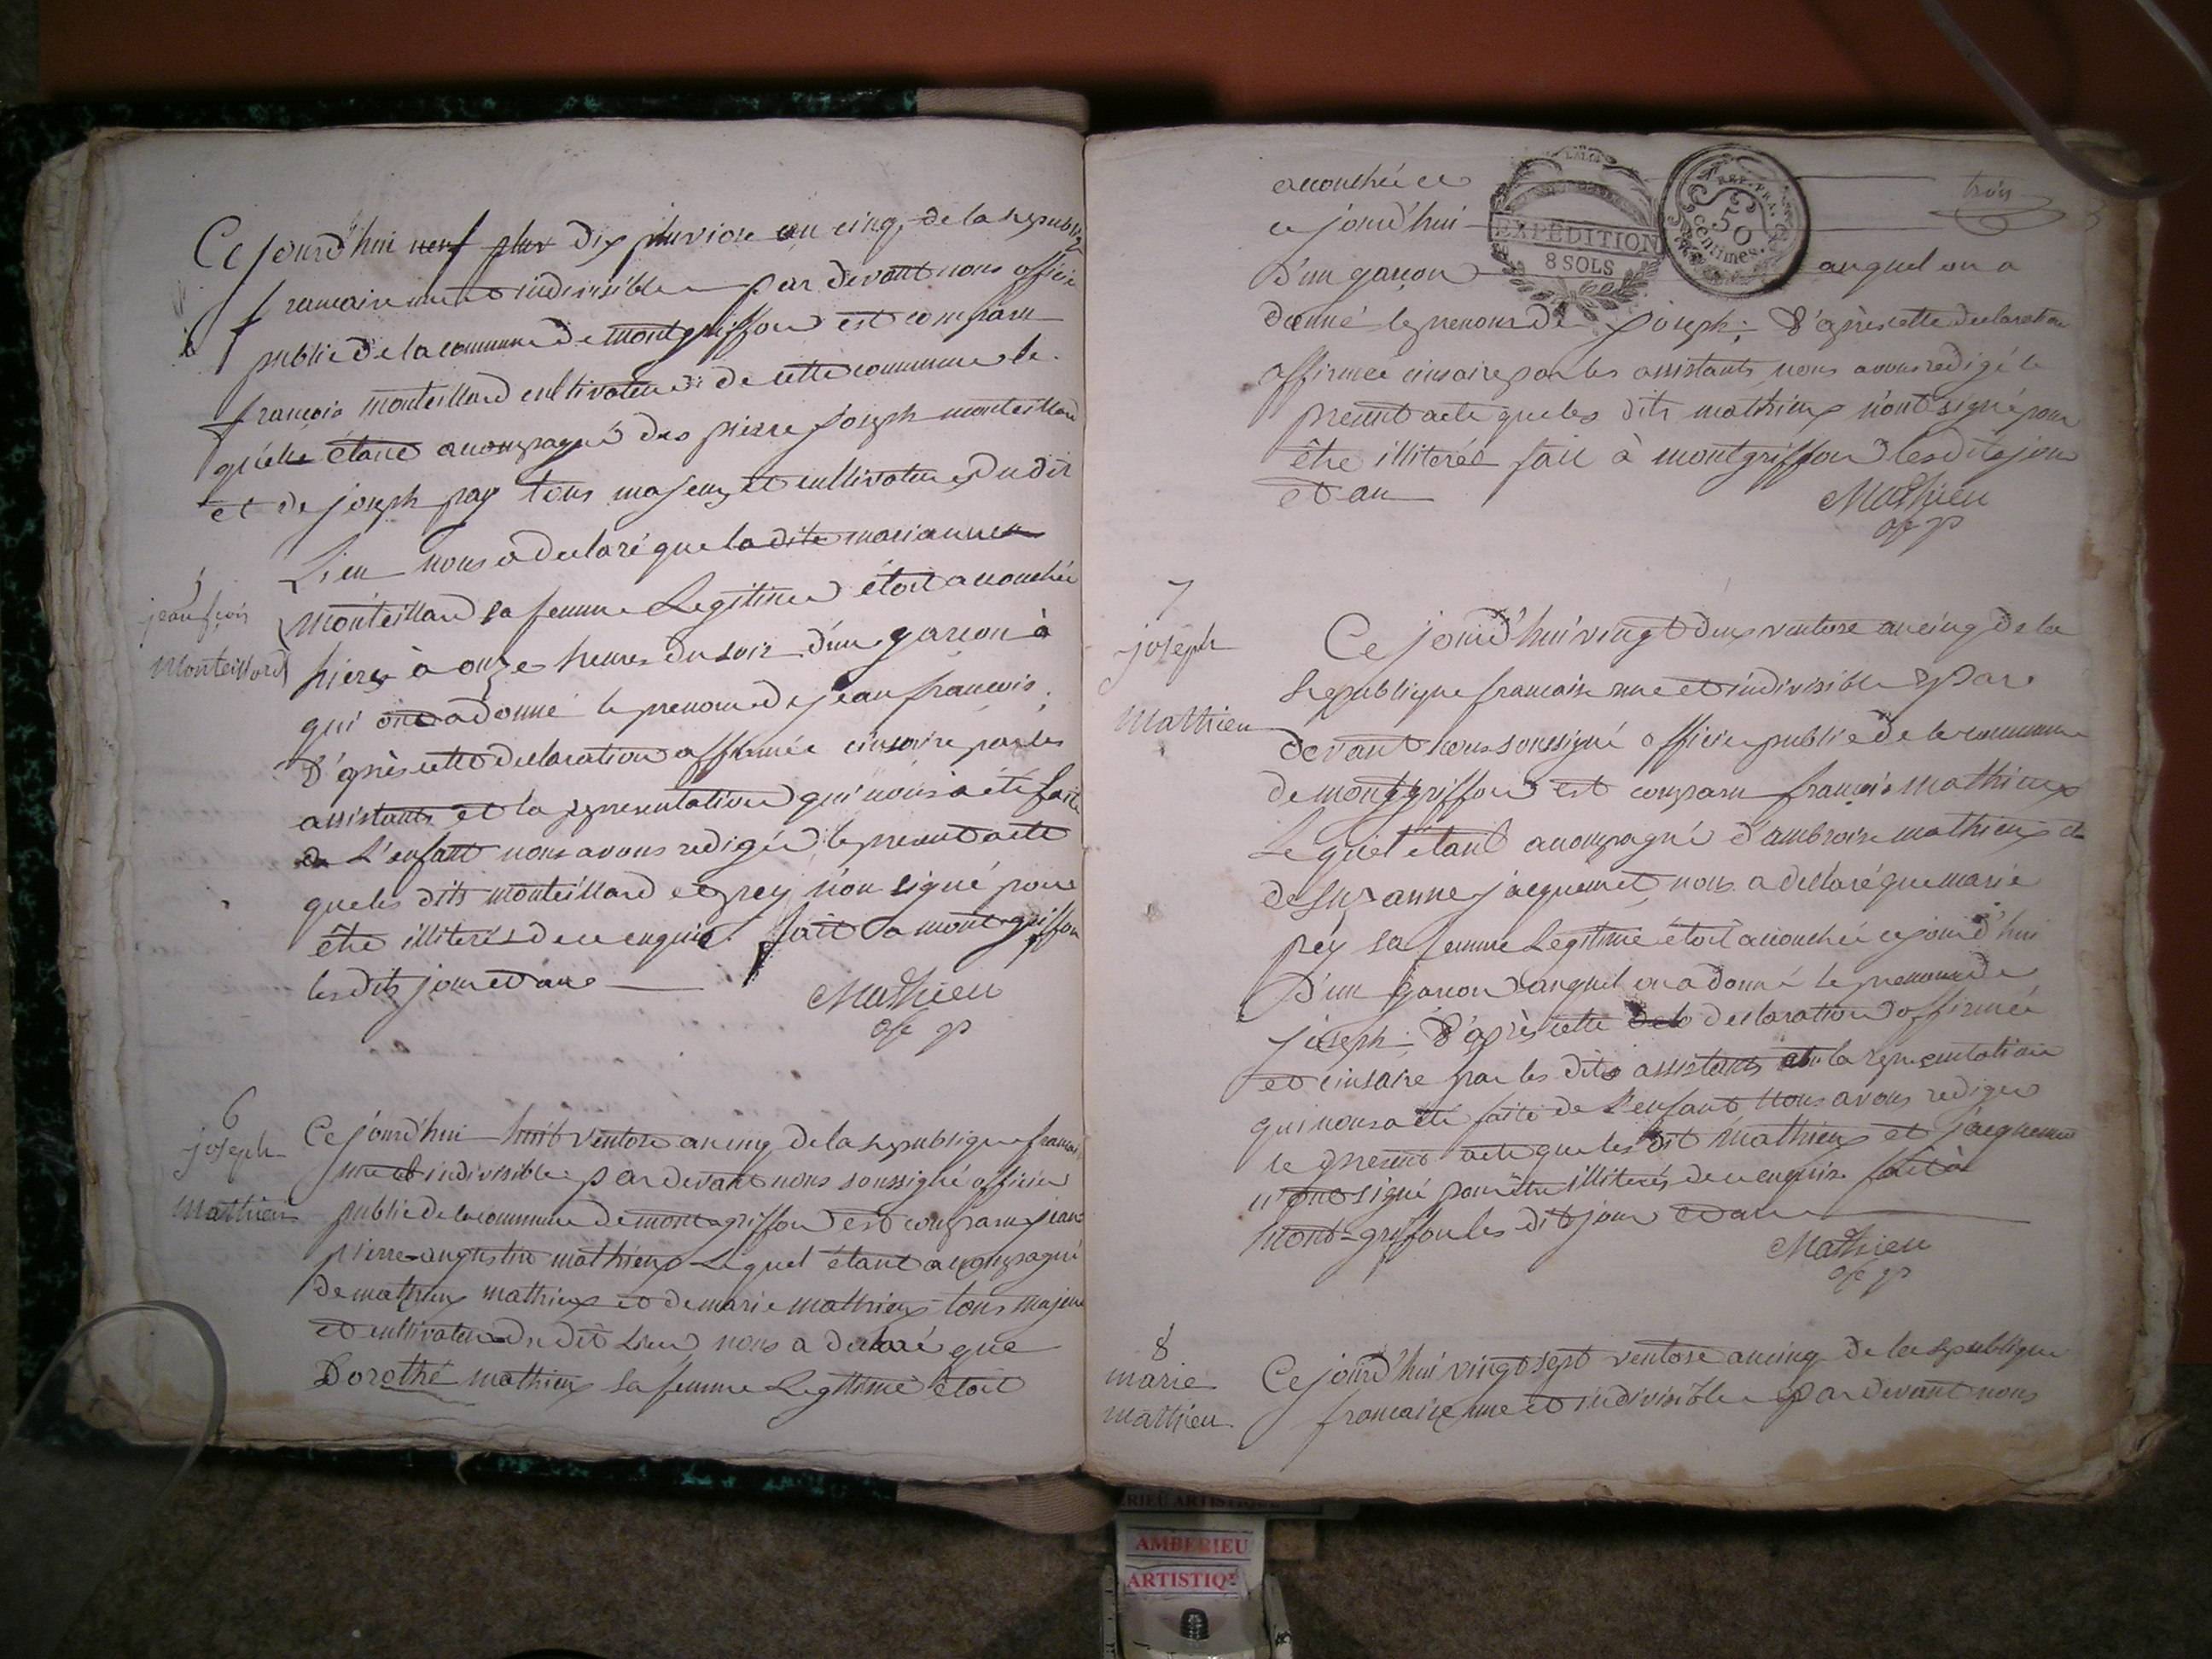 Ce jourd'hui neuf pluv dix pluviose an cinq de la republiq
francaise une et indivisible par devant nous officier
public de la commune de montgriffon est comparu
françois monteillard cultivateur de cette commune le
quel étant acompagné des pierre joseph monteillard
et de joseph pay tous majeurs et cultivateurs du dit
Lieu nous a declaré que la dite marianne
5
jean fçois
Monteillard
monteillard sa femme Legitime étoit acouchée
hiers à onze heures du soir d'un garcon à
qui on a donné le prenom de jean francois.
D'après cette declaration affirmée cinsaire par les
assistants et la representation qui nous a été faite
de L'enfant nous avons redigé le present acte
que les dits monteillard et pey n'on signé pour
être illiterés de ce enquis. fait a montgriffon
les dits jour et an
Mathieu
of p
6
joseph
Mathieu
Ce jourd'hui huit ventose an cinq de la republique francai
une et indivisible par devant nous soussigné officier
public de la commune de montgriffon est comparu jean
pierre-augustin mathieux Lequel étant acompagné
de mathieu mathieux et de marie mathieux tous majeur
et cultivateur du dit Lieu nous a declaré que
Dorothé mathieux sa femme Legitime étoit
acouchée ce
ce jourd'hui
D'un garcon auquel on a
donné le prenom de joseph; D'après cette declaration
affirmée cinsaire par les assistants nous avons redigé le
present acte que les dits mathieux n'ont signé pour
être illiterée fait à montgriffon les dits jour
et an
Mathieu
of p
trois
EXPÉDITION
8 SOLS
REP. FRA.
50
centimes.
7
joseph
Mathieu
Ce jourd'hui vingt deux ventose an cinq de la
Republique francaise une et indivisible par
devant nous soussigné officier public de la commune
de montgriffon est comparu françois Mathieux
Lequel étant acompagné d'ambroise mathieux et
de Suzanne jacquemet nous a declaré que marie
péy sa femme Legitime étoit acouchée ce jourd'hui
D'un garcon auquel on a donné le prenom de
joseph; D'après cette declaration affirmée
et cinsaire par les dits assistants et la representation
qui nous a été faite de L'enfant nous avons redigé
le present acte que les dit Mathieux et jacquemet
n'ont signé pour être illiterés de ce enquis. fait à
Mont-griffon les dit jour et an
Mathieu
of p
8
marie
mathieu
Ce jourd'hui vingt sept ventose an cinq de la republique
francaise une et indivisible par devant nous
AMBERIEU
ARTISTIQ